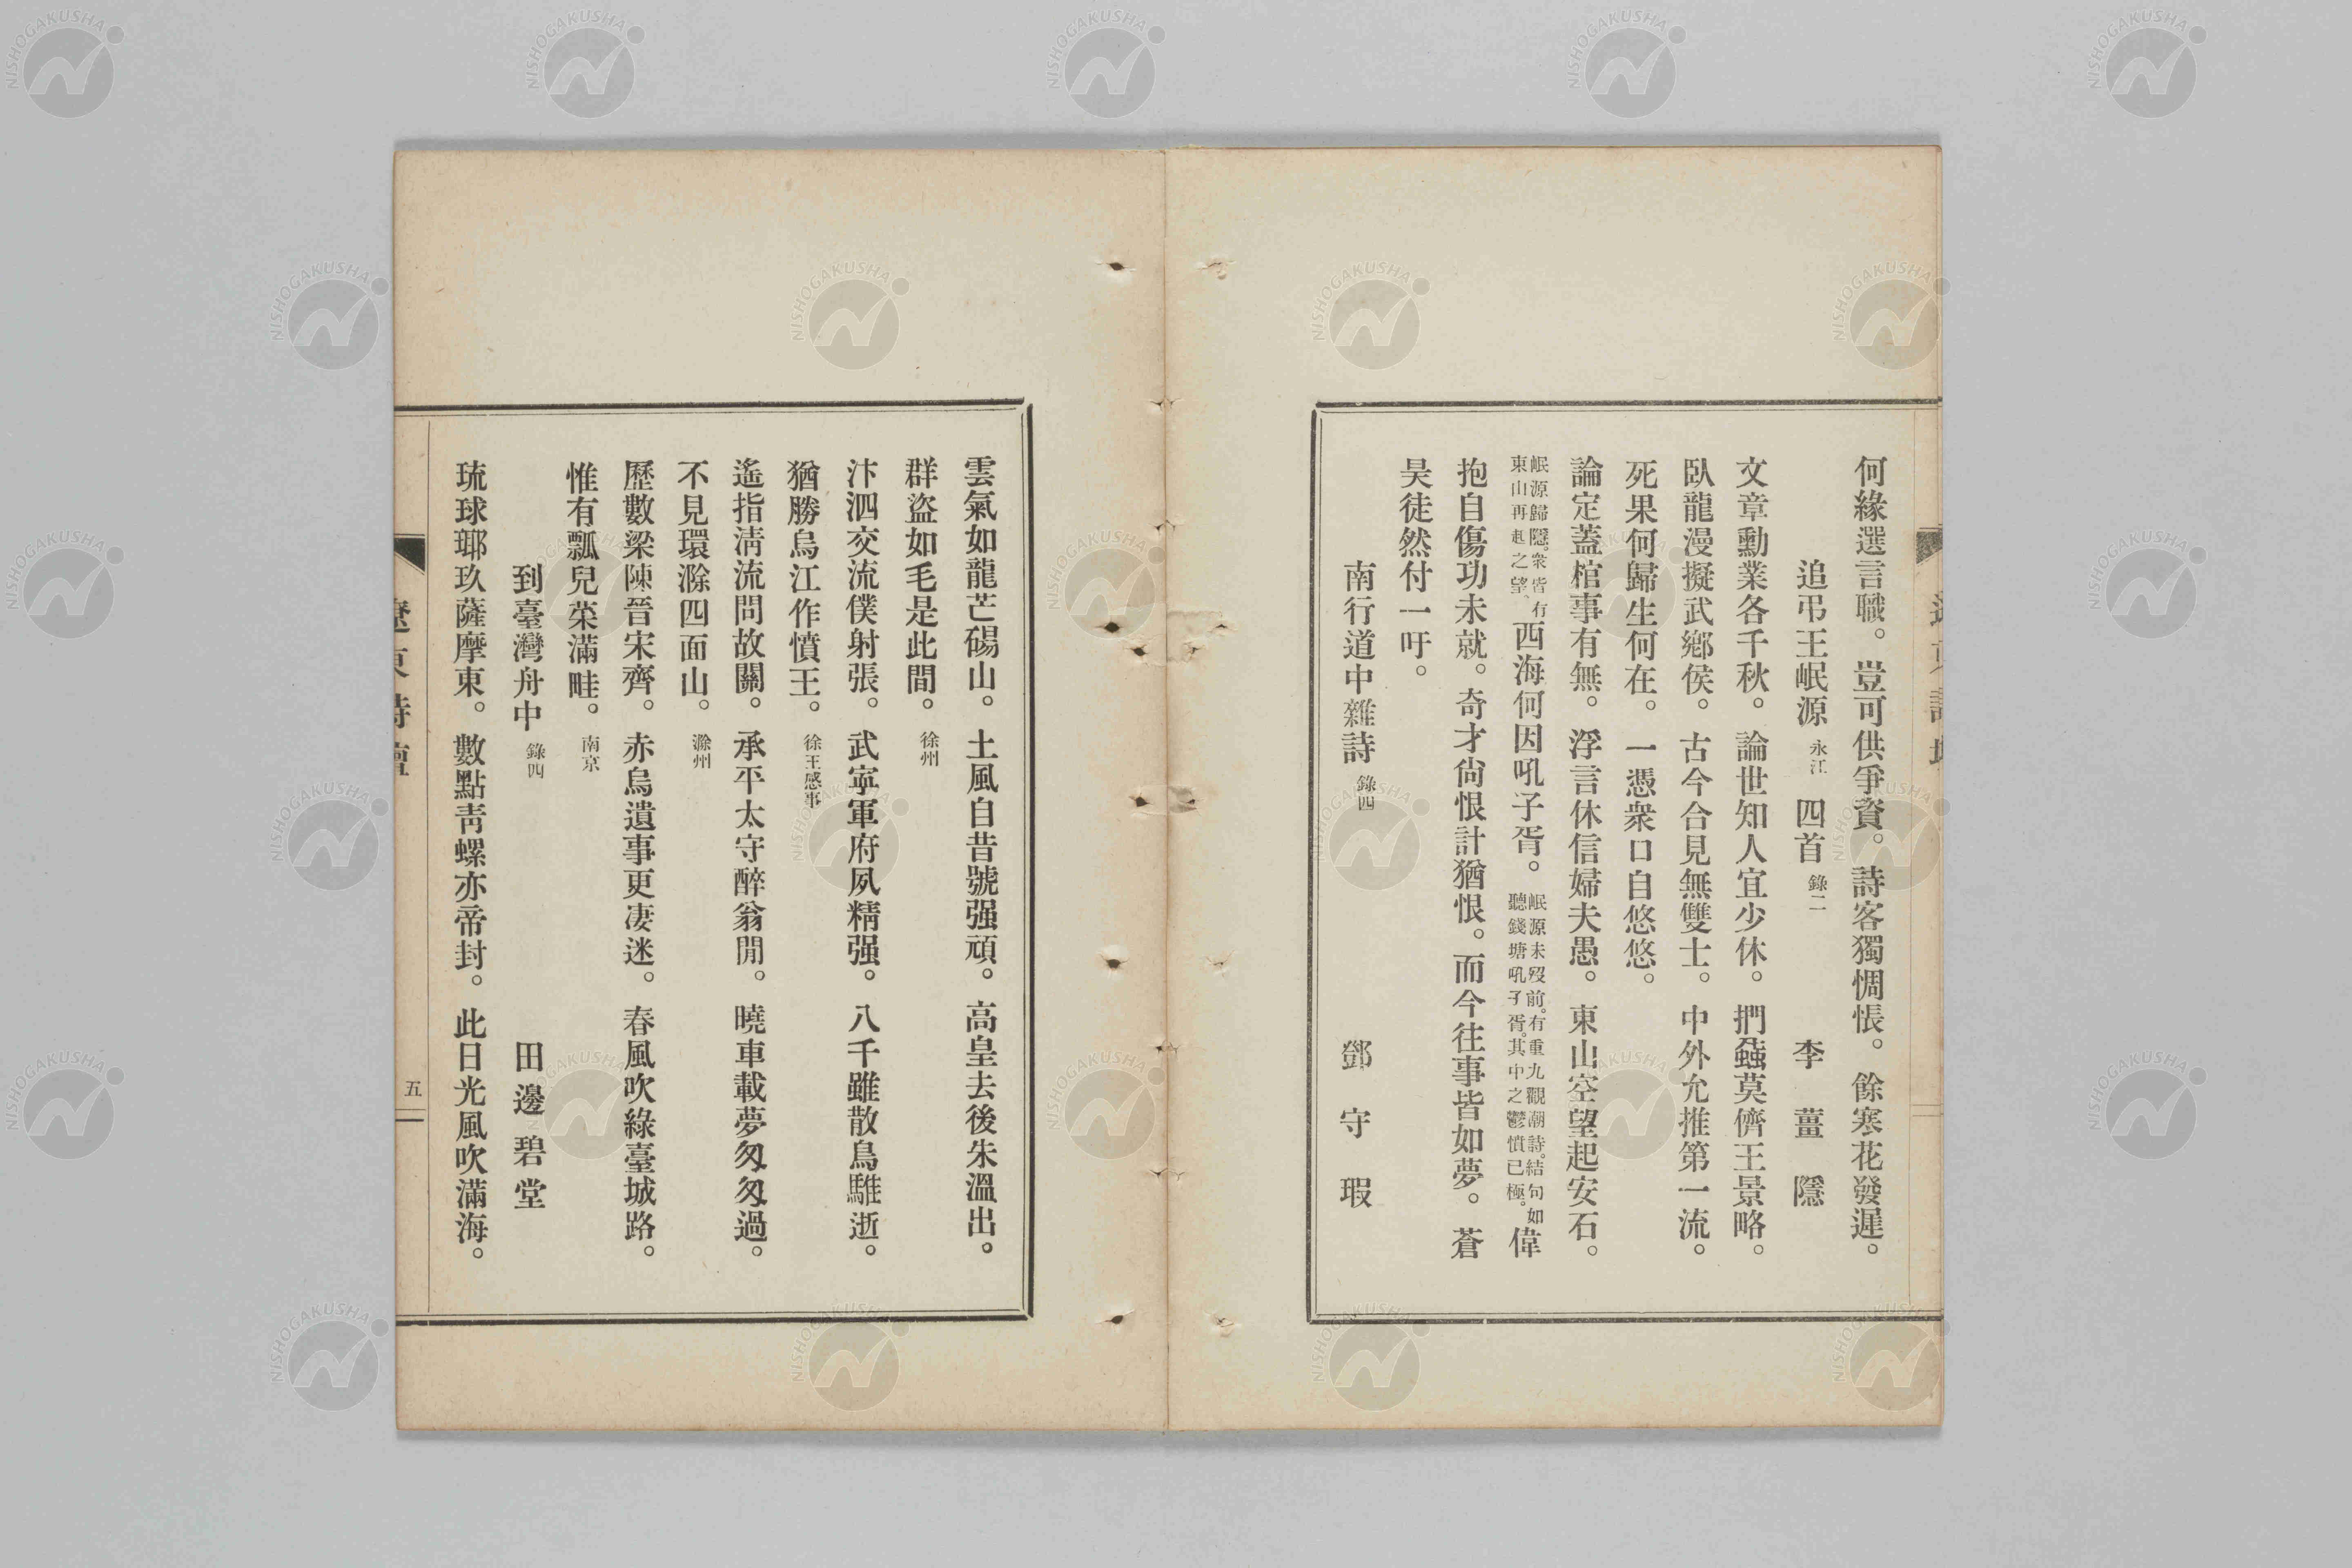 何緣選言職。豈可供爭資。詩客獨惆悵。餘寒花發遲。
追弔王岷源 永江 四首 錄二 李薑隱
文章勳業各千秋。論世知人宜少休。捫蝨莫儕王景略。
臥龍漫擬武鄉侯。古今合見無雙士。中外允推第一流。
死果何歸生何在。一憑衆口自悠悠。
論定蓋棺事有無。浮言休信婦夫愚。東山空望起安石。
岷源歸隱。衆皆有
東山再起之望。
西海何因吼子胥。
岷源未歿前。有重九觀潮詩。結句如
聽錢塘吼子胥。其中之鬱憤已極。
偉
抱自傷功未就。奇才尙恨計猶恨。而今往事皆如夢。蒼
昊徒然付一吁。
南行道中雜詩 錄四 鄧守瑕
雲氣如龍芒碭山。土風自昔號强頑。高皇去後朱溫出。
群盜如毛是此間。 徐州
汴泗交流僕射張。武寧軍府夙精强。八千雖散烏騅逝。
猶勝烏江作憤王。 徐王感事
遙指淸流問故關。承平太守醉翁閒。曉車載夢匆匆過。
不見環滁四面山。 滁州
歷數梁陳晉宋齊。赤烏遺事更凄迷。春風吹綠臺城路。
惟有瓢兒菜滿畦。 南京
到臺灣舟中 錄四 田邊碧堂
琉球瑯玖薩摩東。數點靑螺亦帝封。此日光風吹滿海。
遼東詩壇
五
NISHOGAKUSHA